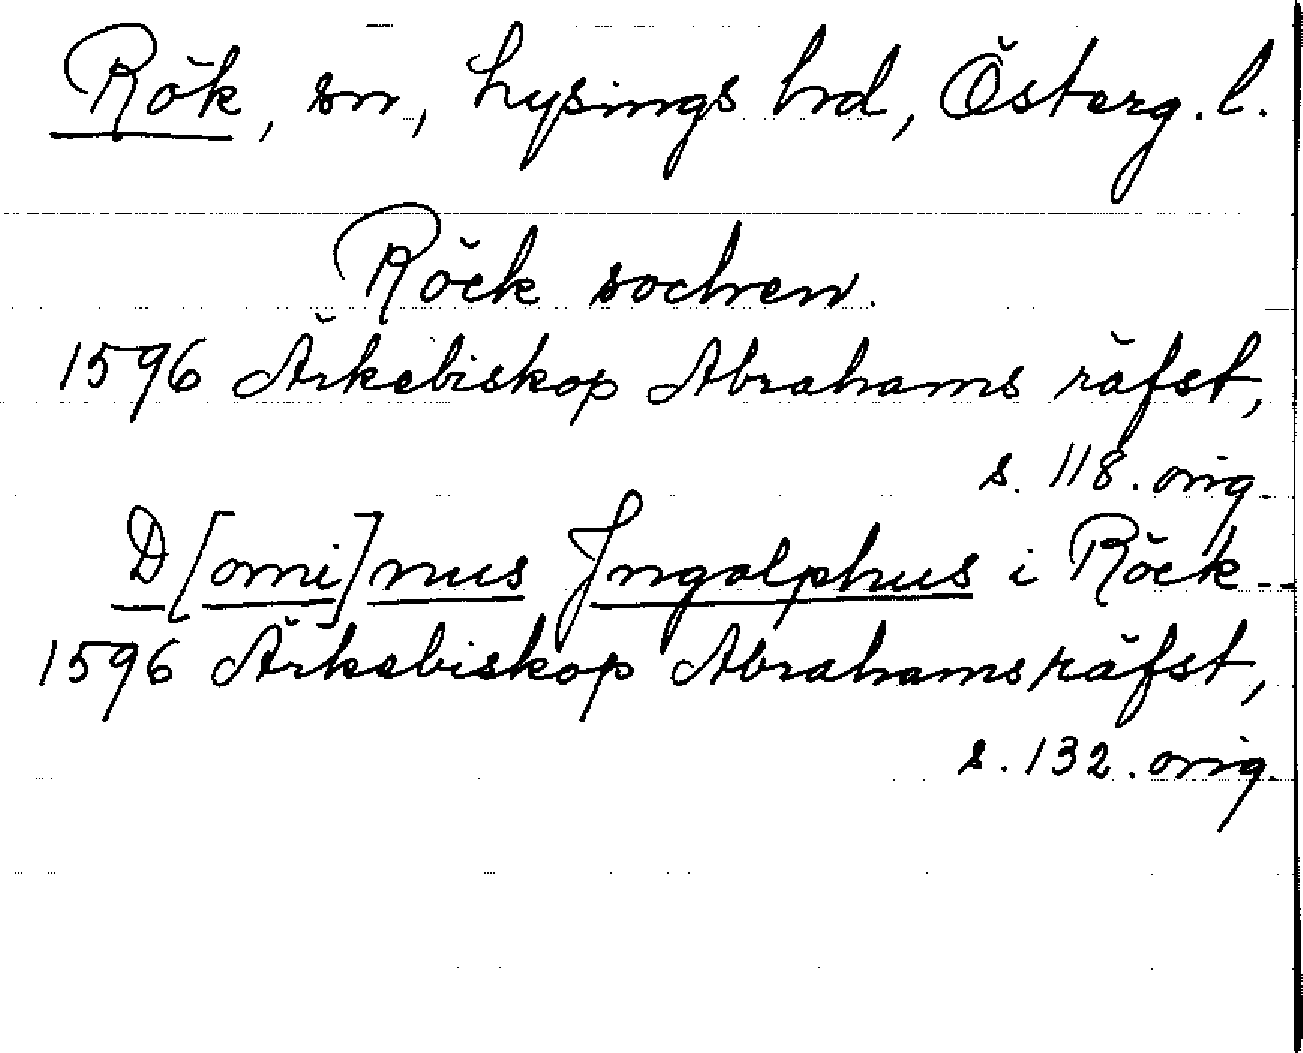 Rök, sn, Lysings hrd, Österg. l.
Röck sochen.
1596 Ärkebiskop Abrahams räfst,
s. 118. orig.
D[omi]nus Jngolphus i Röck
1596 Ärkebiskop Abrahams räfst,
s. 132. orig.